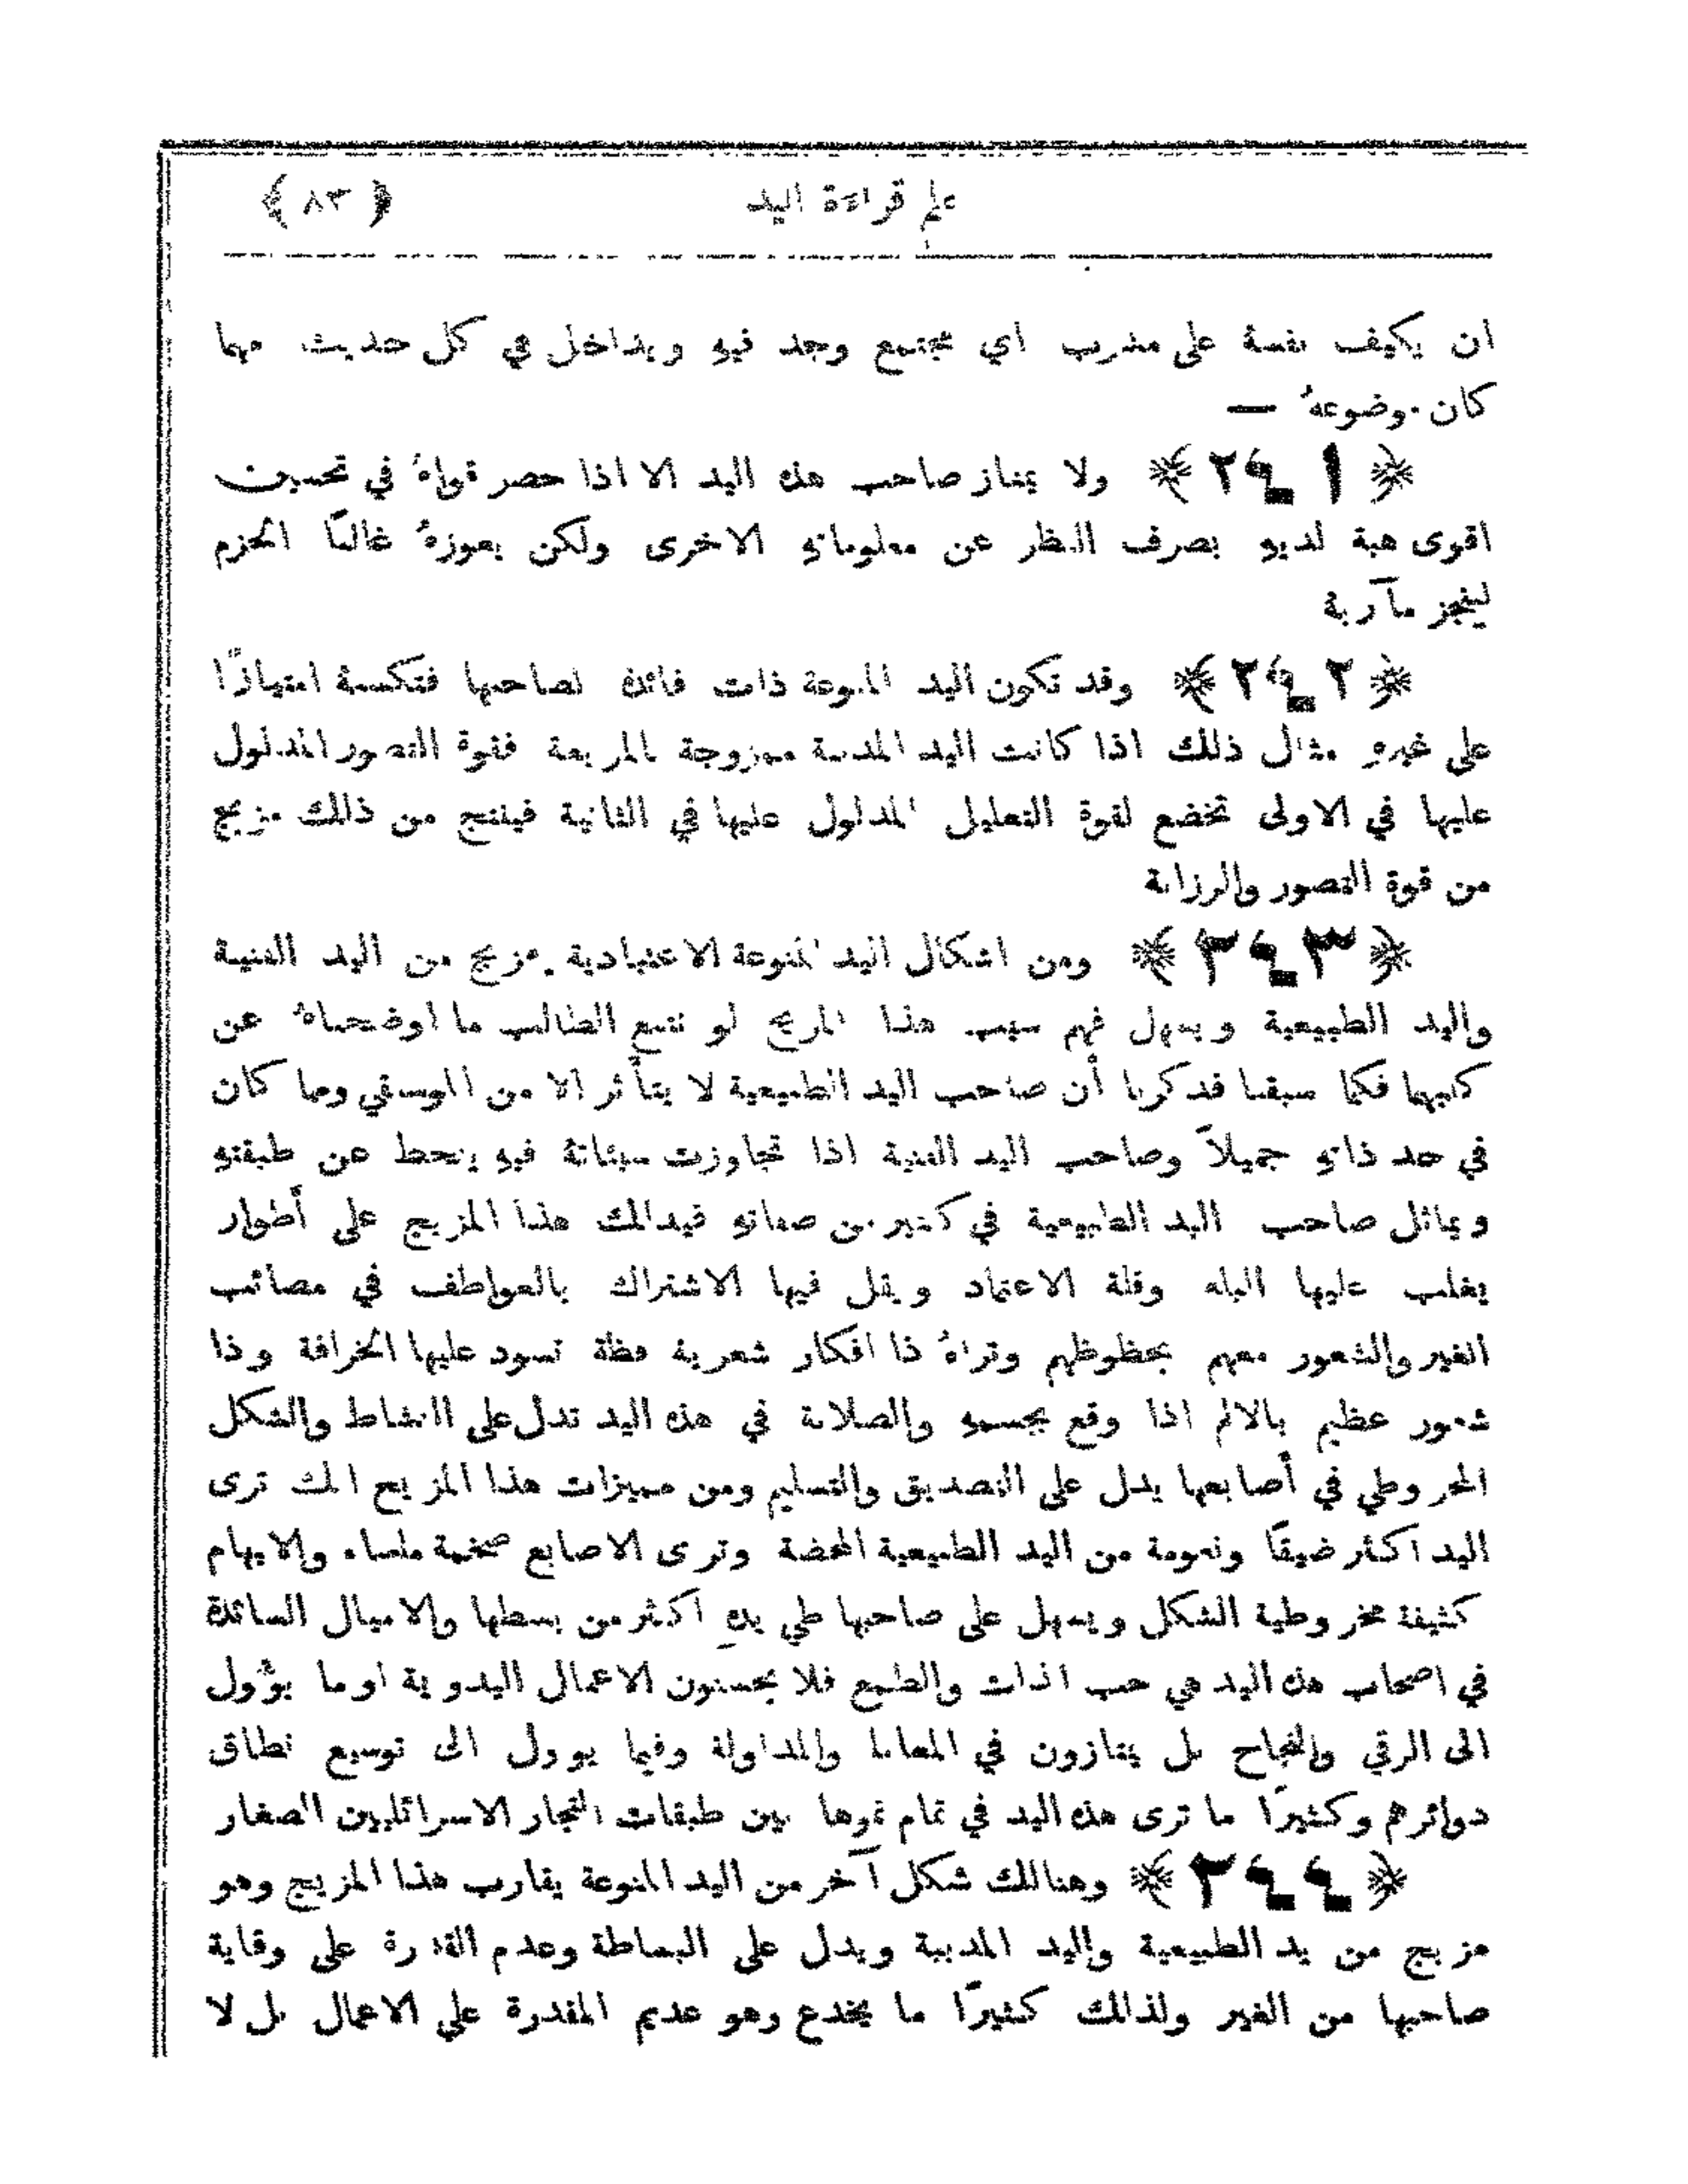 علم قراءة اليد ﴿ ٨٣ ﴾
ان يكيف نفسهُ على مشرب اي مجتمع وجد فيهِ ويداخل في كل حديث مهما
كان موضوعهُ —
﴿ ٢٩١ ﴾ ولا يمتاز صاحب هذه اليد الا اذا حصر قواهُ في تحسين
اقوى هبة لديهِ بصرف النظر عن معلوماتهِ الاخرى ولكن يعوزهُ غالبًا الحزم
لينجز مآربهُ
﴿ ٢٩٢ ﴾ وقد تكون اليد المنوعة ذات فائدة لصاحبها فتكسبهُ امتيازًا
على غيرهِ مثال ذلك اذا كانت اليد المدببة ممزوجة بالمربعة فقوة التصور المدلول
عليها في الاولى تخضع لقوة التعليل المدلول عليها في الثانية فينتج من ذلك مزيج
من قوة التصور والرزانة
﴿ ٢٩٣ ﴾ ومن اشكال اليد المنوعة الاعتيادية مزيج من اليد الفنية
واليد الطبيعية ويسهل فهم سبب هذا المزيج لو تتبع الطالب ما اوضحناهُ عن
كليهما فكما سبقنا فذكرنا أن صاحب اليد الطبيعية لا يتأثر الا من الموسيقى وما كان
في حد ذاتهِ جميلاً وصاحب اليد الفنية اذا تجاوزت سيئاتهُ فيهِ ينحط عن طبقتهِ
ويماثل صاحب اليد الطبيعية في كثير من صفاتهِ فيدلك هذا المزيج على أطوار
يغلب عليها البله وقلة الاعتماد ويقل فيها الاشتراك بالعواطف في مصائب
الغير والشعور معهم بحظوظهم وتراهُ ذا افكار شعرية فظة تسود عليها الخرافة وذا
شعور عظيم بالالم اذا وقع بجسمهِ والصلابة في هذه اليد تدل على النشاط والشكل
المخروطي في أصابعها يدل على التصديق والتسليم ومن مميزات هذا المزيج انك ترى
اليد اكثر ضيقًا ونعومة من اليد الطبيعية المحضة وترى الاصابع ضخمة ملساء والابهام
كثيفة مخروطية الشكل ويسهل على صاحبها طي يدهِ اكثر من بسطها والاميال السائدة
في اصحاب هذه اليد هي حب الذات والطمع فلا يحسنون الاعمال اليدوية او ما يؤول
الى الرقي والنجاح بل يمتازون في المعاملة والمداولة وفيما يوول الى توسيع نطاق
دوائرهم وكثيرًا ما ترى هذه اليد في تمام نموها بين طبقات التجار الاسرائليين الصغار
﴿ ٢٩٤ ﴾ وهنالك شكل آخر من اليد المنوعة يقارب هذا المزيج وهو
مزيج من يد الطبيعية واليد المدببة ويدل على البساطة وعدم القدرة على وقاية
صاحبها من الغير ولذلك كثيرًا ما يخدع وهو عديم المقدرة على الاعمال بل لا